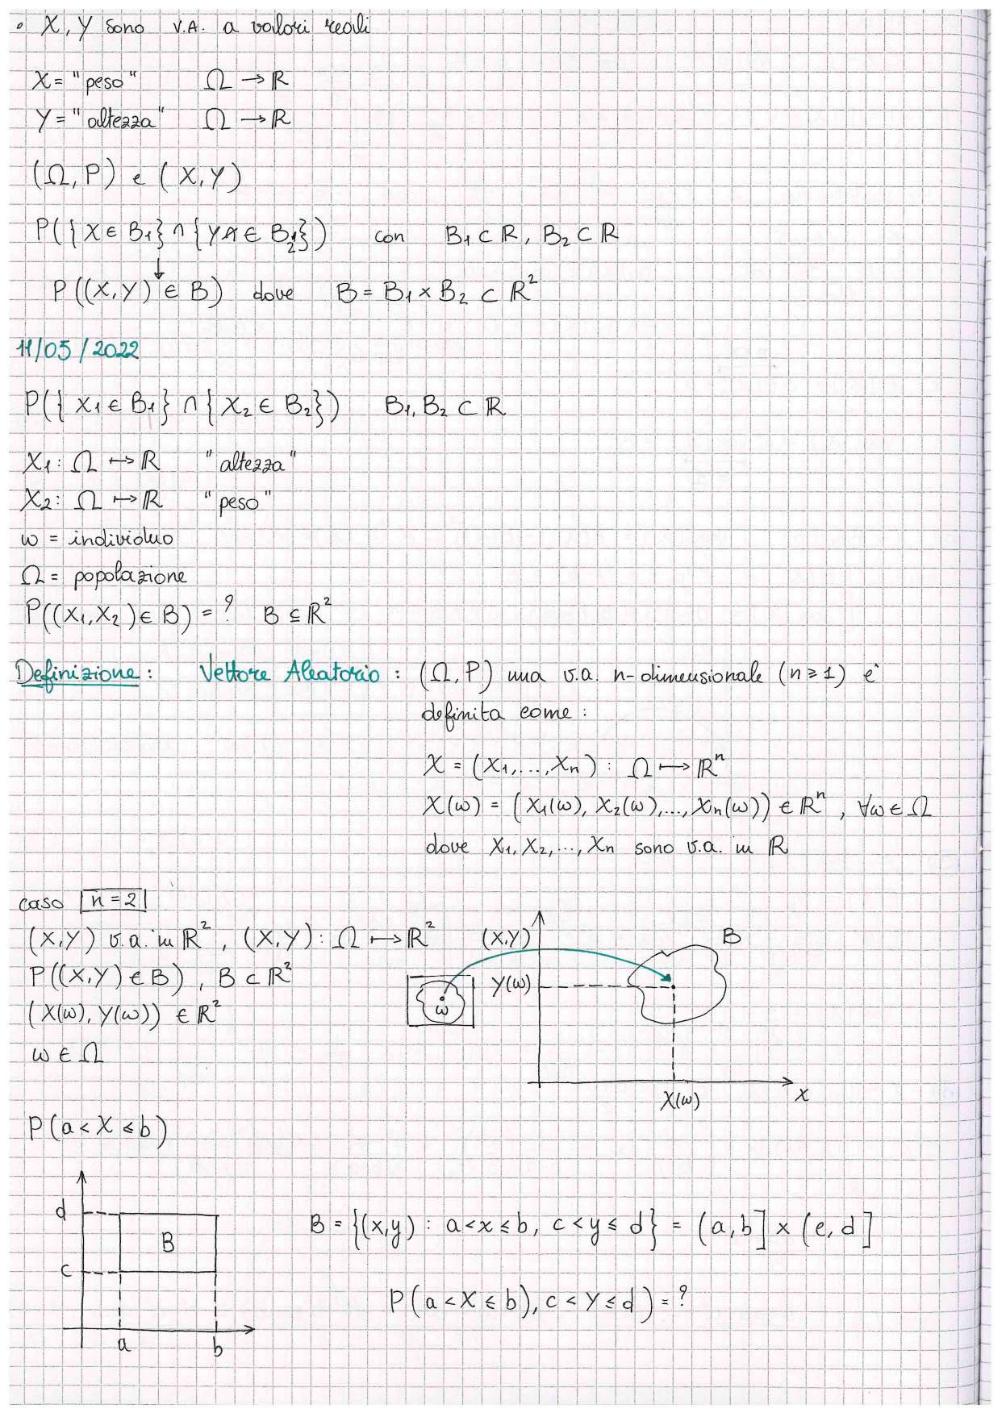 • X, Y sono V.A. a valori reali
X = "peso" Ω → ℝ
Y = "altezza" Ω → ℝ
(Ω, P) e (X, Y)
P({X ∈ B₁} ∩ {Y ∈ B₂}) con B₁ ⊂ ℝ, B₂ ⊂ ℝ
↓
P((X, Y) ∈ B) dove B = B₁ × B₂ ⊂ ℝ²
11/05/2022
P({X₁ ∈ B₁} ∩ {X₂ ∈ B₂}) B₁, B₂ ⊂ ℝ
X₁: Ω ↦ ℝ "altezza"
X₂: Ω ↦ ℝ "peso"
ω = individuo
Ω = popolazione
P((X₁, X₂) ∈ B) = ? B ⊆ ℝ²
Definizione: Vettore Aleatorio: (Ω, P) una v.a. n-dimensionale (n ≥ 1) è
definita come:
X = (X₁, ..., Xₙ) : Ω ↦ ℝⁿ
X(ω) = (X₁(ω), X₂(ω), ..., Xₙ(ω)) ∈ ℝⁿ, ∀ω ∈ Ω
dove X₁, X₂, ..., Xₙ sono v.a. in ℝ
caso n = 2
(X, Y) v.a. in ℝ², (X, Y): Ω ↦ ℝ²
P((X, Y) ∈ B), B ⊂ ℝ²
(X(ω), Y(ω)) ∈ ℝ²
ω ∈ Ω
(X,Y)
B
Y(ω)
ω
X(ω)
x
P(a < X ≤ b)
d
B
c
a
b
B = {(x,y) : a < x ≤ b, c < y ≤ d} = (a, b] × (e, d]
P(a < X ≤ b), c < Y ≤ d) = ?